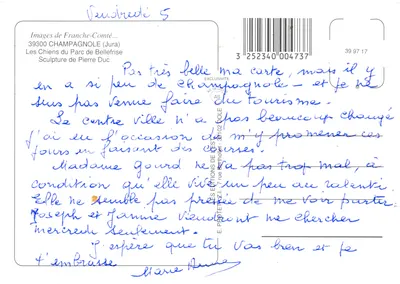 Vendredi 5
Images de Franche-Comté...
39300 CHAMPAGNOLE (Jura)
Les Chiens du Parc de Bellefrise
Sculpture de Pierre Duc
3 252340 004737
39 97 17
Pas très belle ma carte, mais il y
en a si peu de Champagnole - et je ne
suis pas venue faire du tourisme.
Le centre ville n'a pas beaucoup changé
j'ai eu l'occasion de m'y promener ces
jours en faisant des courses.
Madame Gourd ne va pas trop mal, à
condition qu'elle vive un peu au ralenti.
Elle ne semble pas pressée de me voir partir.
Joseph et Jannie viendront me chercher
mercredi seulement.
J'espère que tu vas bien et je
t'embrasse
Marie